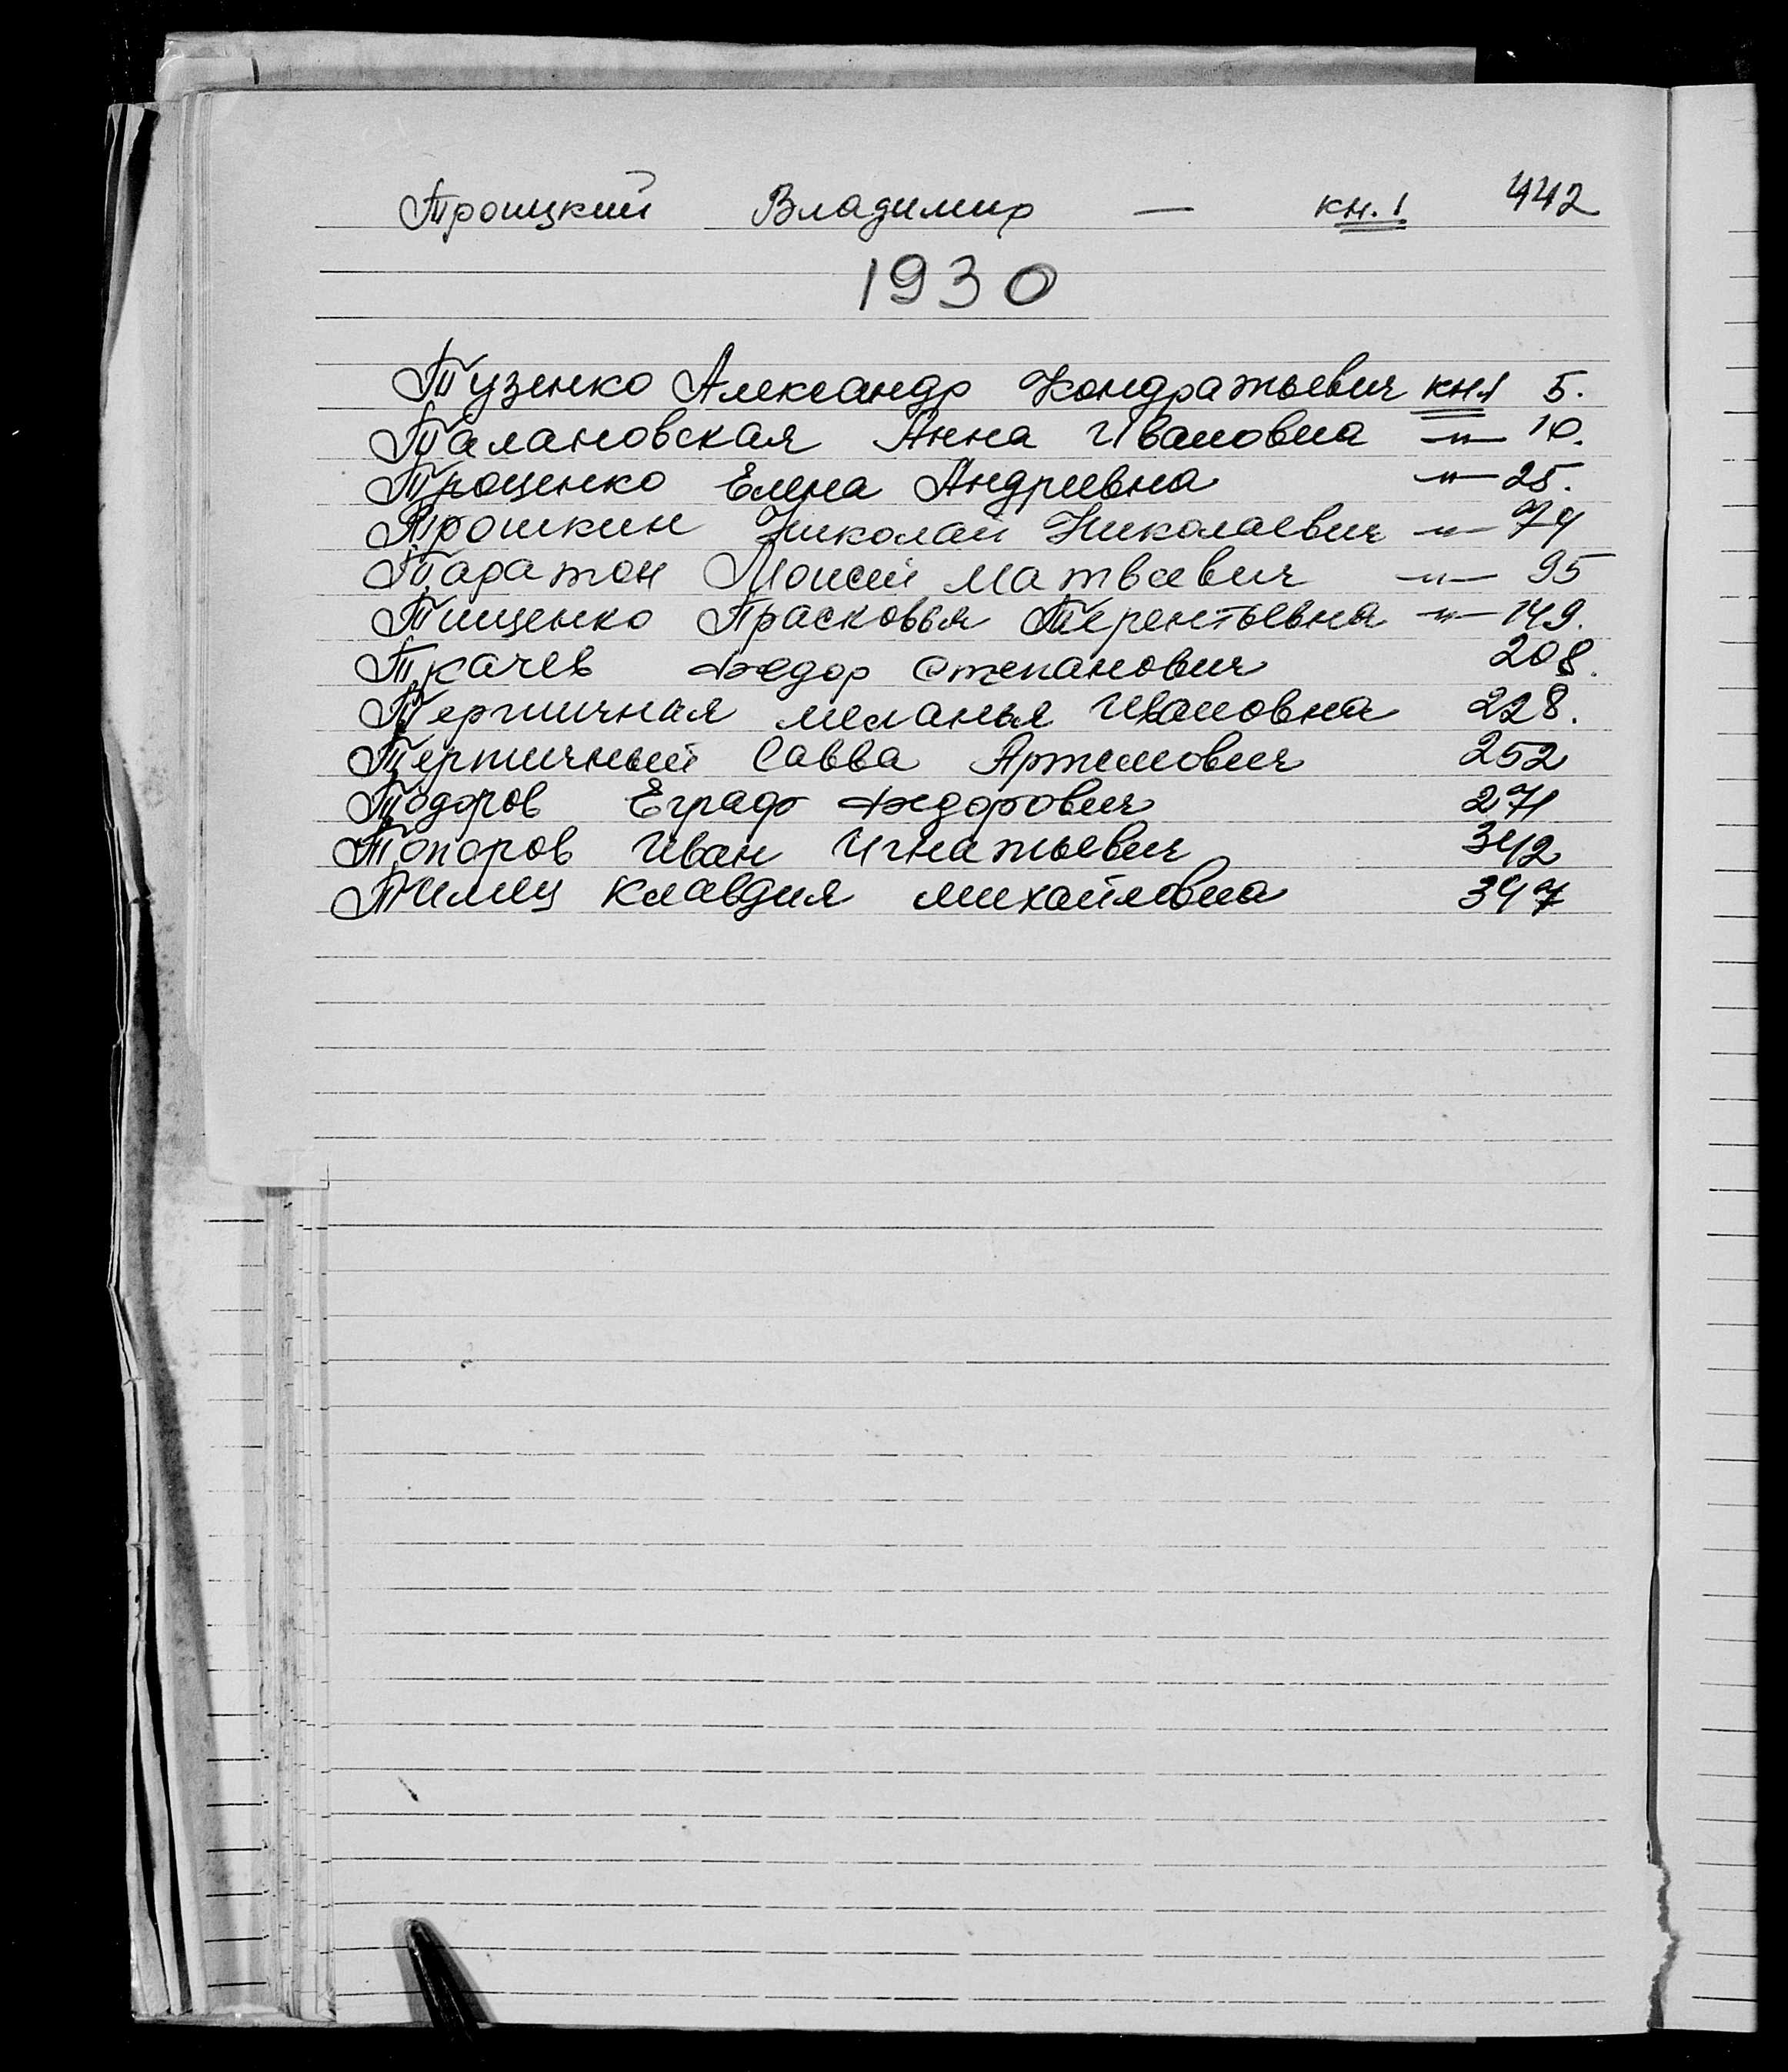 Троицкий Владимир — кн. 1 442
1930
Тузенко Александр Кондратьевич кн1 5.
Талановская Анна Ивановна —"— 10.
Троценко Елена Андреевна —"— 25.
Трошкин Николай Николаевич —"— 74
Таратон Моисей Матвеевич —"— 95
Тищенко Прасковья Терентьевна —"— 149.
Ткачев Федор Степанович 208.
Терпичная Меланья Ивановна 228.
Терпичный Савва Артемович 252
Тодоров Еграф Федорович 271
Топоров Иван Игнатьевич 342
Тилищ Клавдия Михайловна 347